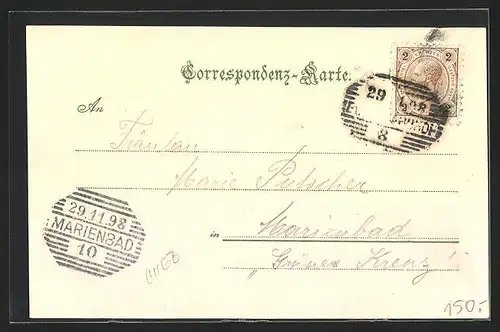 Correspondenz-Karte.
2 2
29
8
An
Fräulein
Marie Putscher
in Marienbad
„Grünes Kreuz“
29.11.98
MARIENBAD
10
150.-